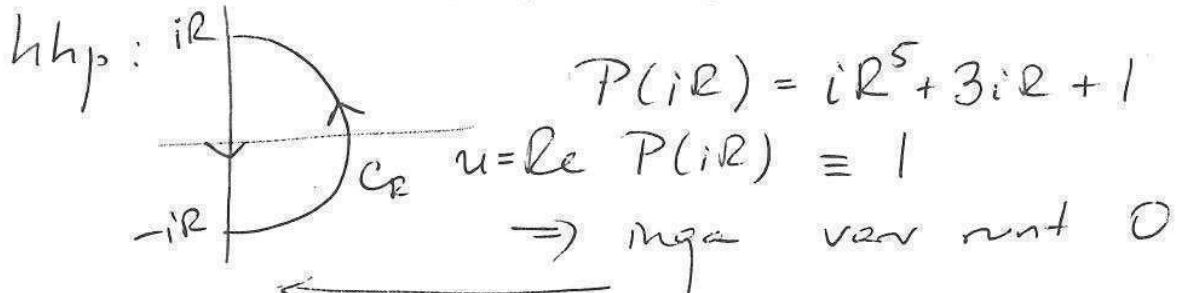 hhp:
iR
P(iR) = iR⁵ + 3iR + 1
C_R u = Re P(iR) ≡ 1
-iR ⇒ inga varv runt 0